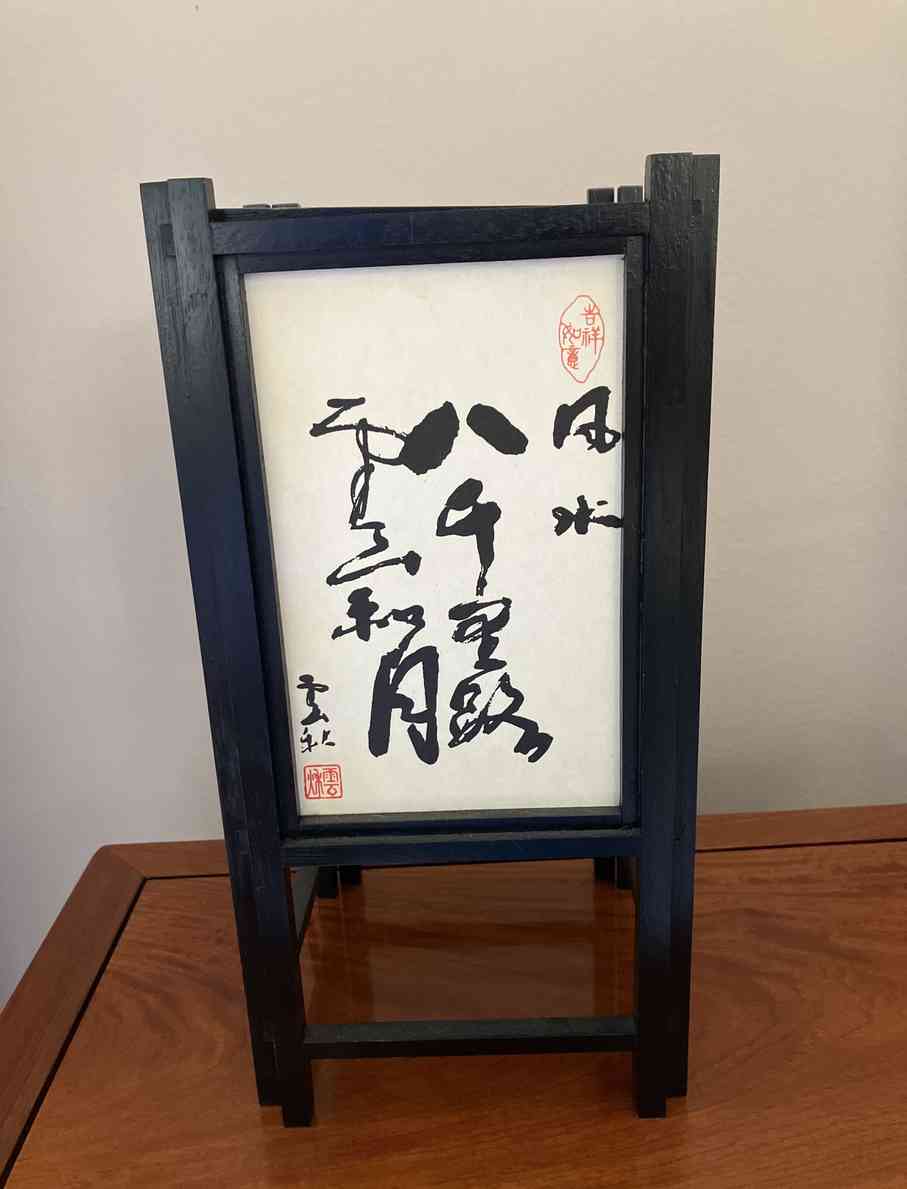 吉祥
如意
风水
八千里路
雲和月
雲秋
雲秋